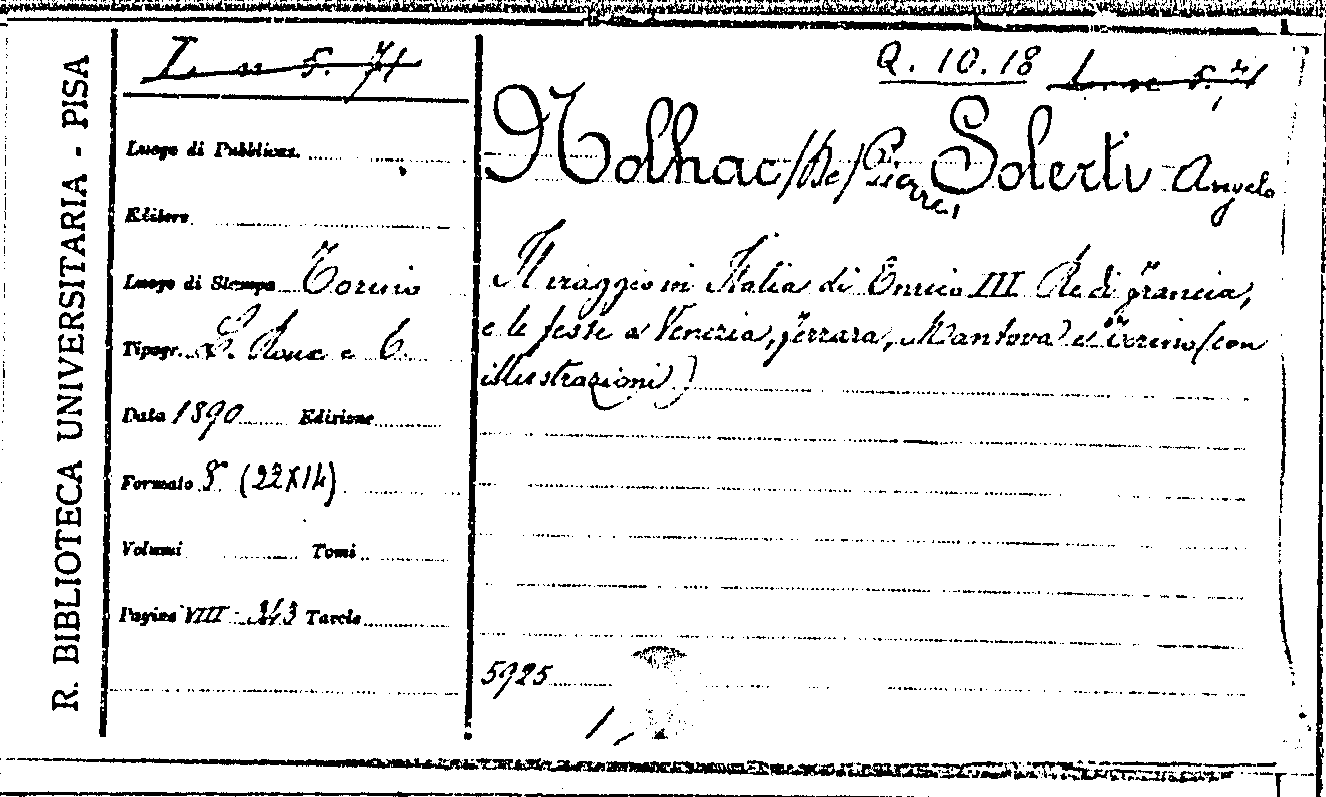 R. BIBLIOTECA UNIVERSITARIA - PISA
5. 71
Q. 10.18
5. 71
Nolhac /De/ Pierre, Solerti Angelo
Il viaggio in Italia di Enrico III Re di Francia,
e le feste a Venezia, Ferrara, Mantova e Torino (con
illustrazioni)
Luogo di Pubblicaz.
Editore
Luogo di Stampa Torino
Tipogr. L. Roux e C.
Data 1890 Edizione
Formato 8° (22X14)
Volumi Tomi
Pagine VIII - 343 Tavole
5925